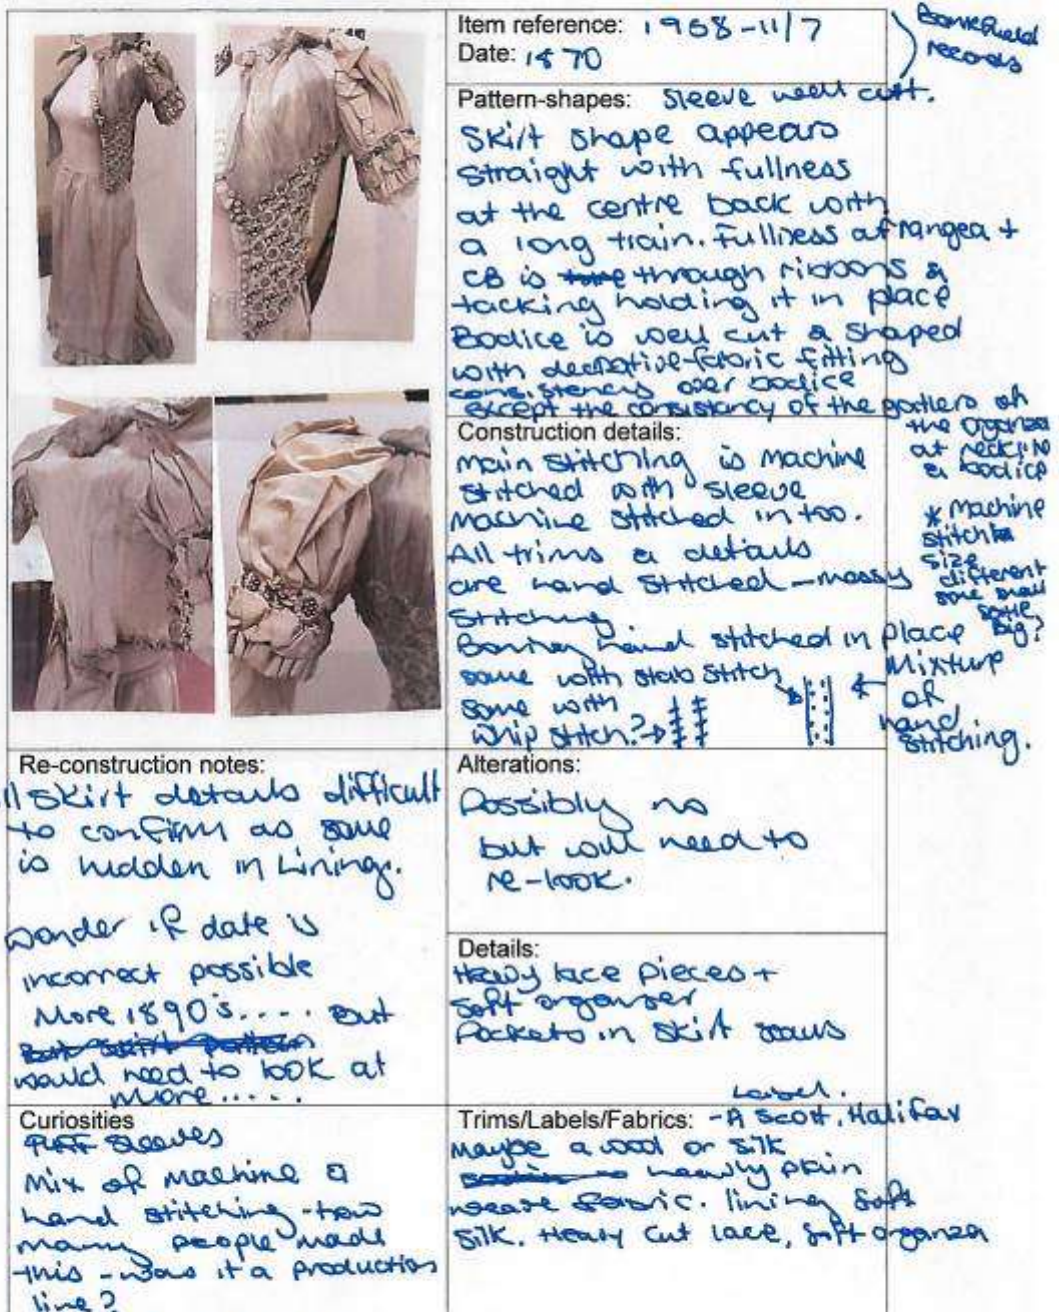 Item reference: 1958-11/7
Date: 1870
records
Pattern-shapes: Sleeve well cut.
Skirt shape appears
straight with fullness
at the centre back with
a long train. Fullness arranged +
CB is through ribbons &
tacking holding it in place
Bodice is well cut & shaped
with decrative fabric fitting
consistency over bodice
except the consistancy of the gathers of
the organza
at neckline
& bodice
Construction details:
main stitching is machine
stitched with sleeve
machine stitched in too.
All trims & details
are hand stitched - messy
stitching
Boning hand stitched in place
some with stab stitch
some with
whip stitch?
* machine
stitch
size
different
some small
some
big?
Mixture
of
hand
stitching.
Re-construction notes:
Skirt details difficult
to confirm as some
is hidden in Lining.
wonder if date is
incorrect possible
More 1890's.... But
would need to look at
more.....
Alterations:
Possibly no
but will need to
re-look.
Details:
Heavy lace pieces +
soft organzer
Pockets in skirt seams
Curiosities
Puff sleeves
Mix of machine &
hand stitching - how
many people made
this - was it a production
line?
Label.
Trims/Labels/Fabrics: - A Scott, Halifax
Maybe a wool or silk
heavly plain
weave fabric. lining soft
silk. Heavy cut lace, soft organzer